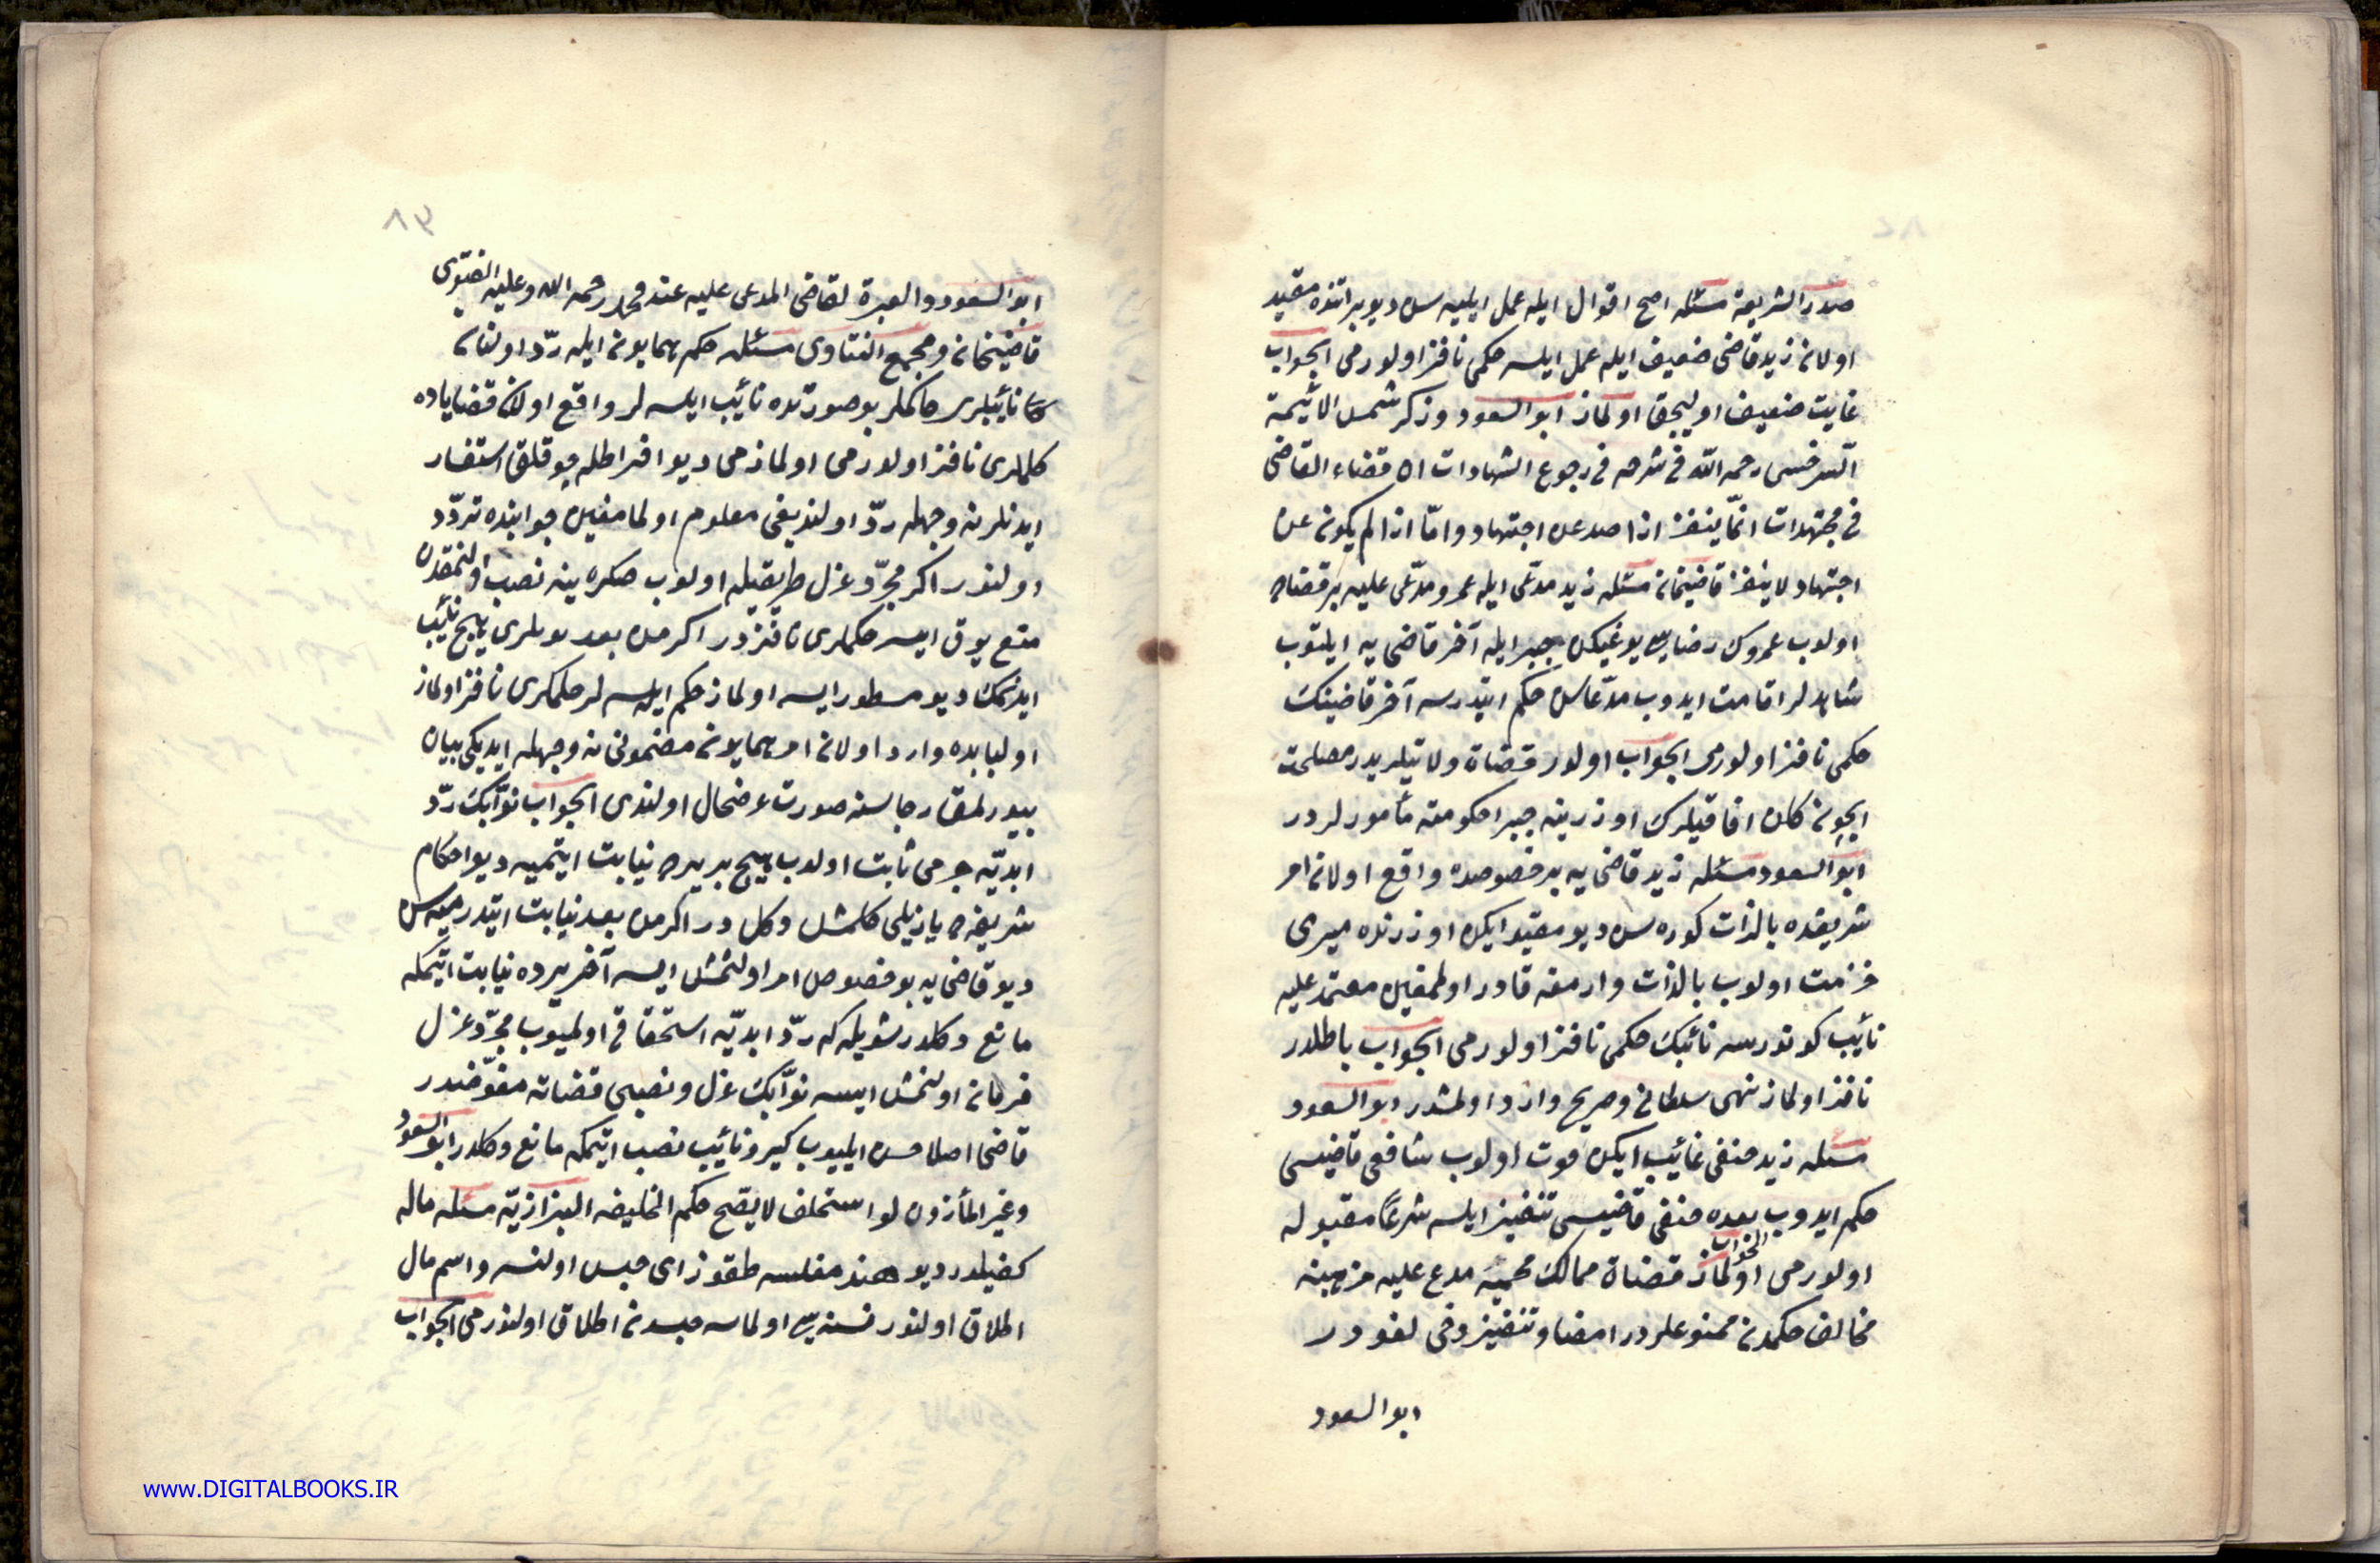 ٨٢
صدر الشريعة مسئله اصح اقوال ايله عمل ايليه سن ديو براتنده مقيد
اولان زيد قاضى ضعيف ايله عمل ايلسه حكمى نافذ اولورمى الجواب
غايت ضعيف اوليجق اولماز ابو السعود وذكر شمس الائيمة
السرخسى رحمه الله فى شرحه فى رجوع الشهادات ان قضاء القاضى
فى مجتهدات انّما ينفذ اذا صدر عن اجتهاد وامّا اذا لم يكون عن
اجتهاد لا ينفذ قاضيخان مسئله زيد مدّعى ايله عمرو مدّعى عليه بر قضاده
اولوب عمروك رضاسى يوغيكن جبر ايله آخر قاضى يه ايلتوب
شاهدلر اقامت ايدوب مدّعاسن حكم ايتدرسه آخر قاضينك
حكمى نافذ اولورمى الجواب اولور قضاة ولايتلريدر مصلحت
ايچون كلن افاقيلرك اوزرينه جبرا حكومته مأمورلردر
ابو السعود مسئله زيد قاضى يه بر خصوصده واقع اولان امر
شريفده بالذات كوره سن ديو مقيد ايكن اوزرنده ميرى
خزمت اولوب بالذات وارمغه قادر اولمغين معتمد عليه
نائيب كوندرسه نائبك حكمى نافذ اولورمى الجواب باطلدر
نافذ اولماز نهى سلطانى وصريح وارد اولمشدر ابو السعود
مسئله زيد حنفى غائيب ايكن فوت اولوب شافعى قاضيسى
حكم ايدوب بعده حنفى قاضيسى تنفيذ ايلسه شرعًا مقبوله
اولورمى الجواب اولماز قضاة ممالك محميّه مدع عليه مزهبنه
مخالف حكمدن ممنوعلردر امضا و تنفيذ وفى لغودر
ابو السعود
٨٣
ابو السعود والعبرة لقاضى المدعى عليه عند محمد رحمه الله وعليه الفتوى
قاضيخان ومجمع الفتاوى مسئله حكم همايون ايله ردّ اولنان
نائيبلرى حاكملر بو صورتده نائيب ايلسه لر واقع اولان قضاياده
حكملرى نافذ اولورمى اولمازمى ديو افراطله چوقلق استفسار
ايدنلر نه وجهله ردّ اولنديغى معلوم اولمامغين جوابنده تردّد
اولنور اكر مجرّد عزل طريقيله اولوب صكره ينه نصب اولنمقدن
منع يوق ايسه حكملرى نافذدر اكر من بعد بونلرى هيچ نائيب
ايدنمك ديو مسطور ايسه اولماز حكم ايلسه لر حكملرى نافذ اولماز
اول بابده وارد اولان امر همايون مضمونى نه وجهله ايديكى بيان
بيورلمق رجاسنه صورت عرضحال اولندى الجواب نوّابك ردّ
ابديّه جرمى ثابت اولوب هيچ بر يرده نيابت ايتميه ديو احكام
شريفه ده يازيلى كلمش دكل در اكر من بعد نيابت ايتدرميه سن
ديو قاضى يه بو خصوص امر اولنمش ايسه آخر يرده نيابت ايتمكه
مانع دكلدر شويله كه ردّ ابديّه استحقاقى اولميوب مجرّد عزل
فرمان اولنمش ايسه نوّابك عزل ونصبى قضاته مفوّضدر
قاضى اصلا حسن ايليوب كيرو نائيب نصب ايتمكه مانع دكلدر ابو السعود
وغير المأذون لو استخلف لا يصّح حكم الخليفه البزازيّه مسئله ماله
كفيلدر ديو هند مفلسه طقوز اى حبس اولنسه و اسم مال
اطلاق اولنور نسنه سى اولماسه حبسدن اطلاق اولنورمى الجواب
www.DIGITALBOOKS.IR